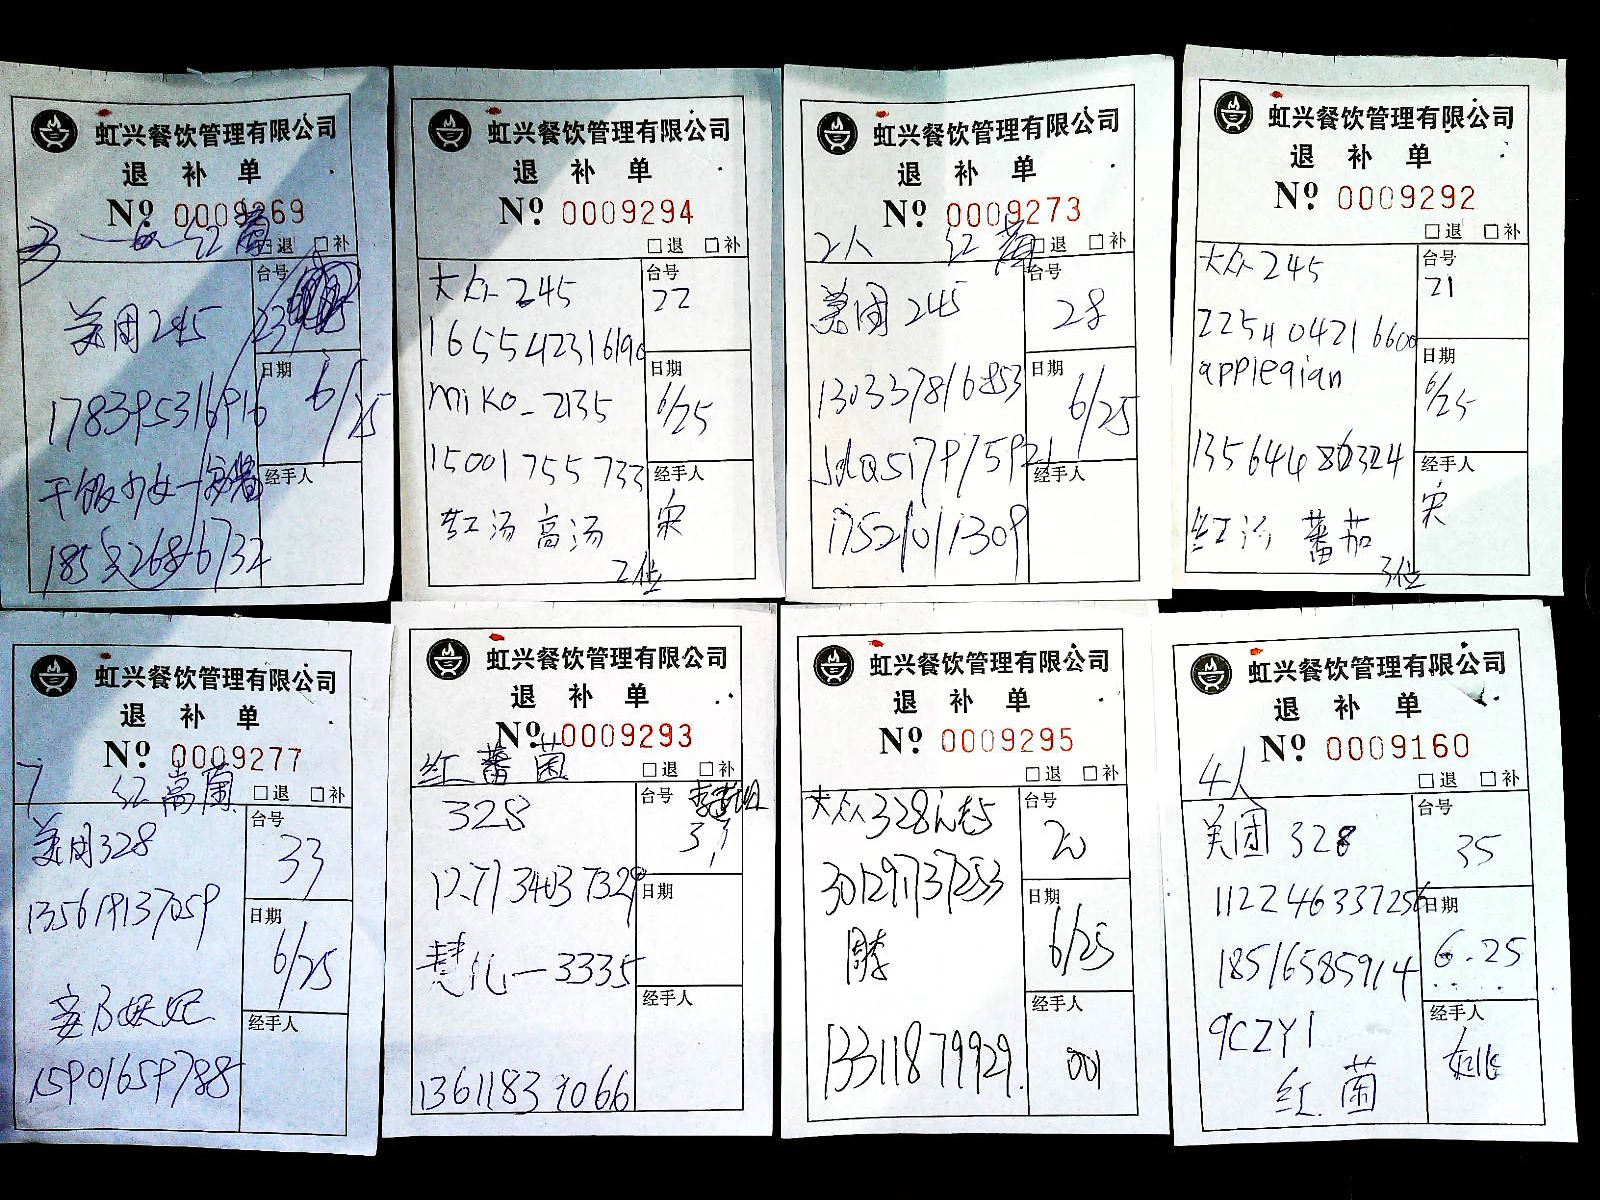 虹兴餐饮管理有限公司
退 补 单
Nº 0009269
红菌
□退 □补
台号
美团245
23
日期
6/25
178395316916
干饭少女一
经手人
虹兴餐饮管理有限公司
退 补 单
Nº 0009294
□退 □补
大众245
台号
22
165542316190
日期
miko_2135
6/25
15001755733
经手人
红汤 高汤
宋
2位
虹兴餐饮管理有限公司
退 补 单
Nº 0009273
2人 红菌
□退 □补
台号
美团245
28
日期
130337816853
6/25
经手人
17521011309
虹兴餐饮管理有限公司
退 补 单
Nº 0009292
□退 □补
大众245
台号
21
225404216600
日期
appleqian
6/25
经手人
红汤 蕃茄
宋
3位
虹兴餐饮管理有限公司
退 补 单
Nº 0009277
7 红高菌
□退 □补
台号
美团328
33
日期
6/25
经手人
15901659788
虹兴餐饮管理有限公司
退 补 单
Nº 0009293
红蕃菌
□退 □补
328
台号
33
127134037329
日期
慧化一3335
经手人
13611837066
虹兴餐饮管理有限公司
退 补 单
Nº 0009295
□退 □补
大众328
台号
20
301291737253
日期
6/25
经手人
13311879929.
001
虹兴餐饮管理有限公司
退 补 单
Nº 0009160
4人
□退 □补
美团 328
台号
35
112246337256
日期
18516585914
6.25
9CZY1
经手人
红.菌